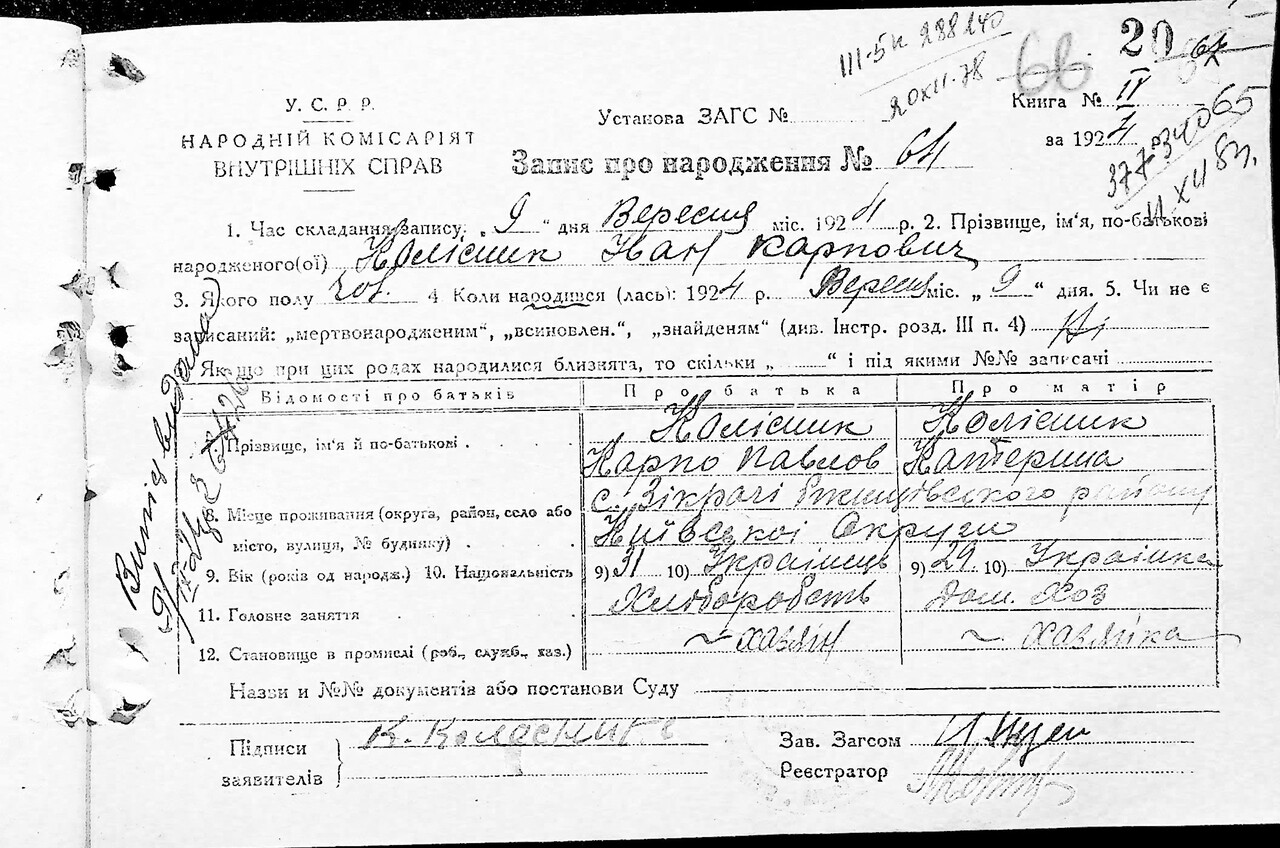 III-5к 288240
20 XII. 78
66
20
67
У. С. Р. Р.
НАРОДНІЙ КОМІСАРІЯТ
ВНУТРІШНІХ СПРАВ
Установа ЗАГС №
Книга № II
за 1924 р.
377340065
11 XII 83 г.
Запис про народження № 64
1. Час складання запису: „ 9 “ дня Вересня міс. 1924 р. 2. Прізвище, ім'я, по-батькові
народженого(ої) Колісник Іван Карпович
3. Якого полу чол. 4 Коли народився (лась): 1924 р. Вересня міс. „ 9 “ дня. 5. Чи не є
записаний: „мертвонародженим“, „всиновлен.“, „знайденям“ (див. Інстр. розд. III п. 4) Ні
Якщо при цих родах народилися близнята, то скільки „ “ і під якими №№ записачі
Відомості про батьків Про батька Про матір
7. Прізвище, ім'я й по-батькові . Колісник Колісник
Карпо Павлов Катерина
8. Місце проживання (округа, район, село або с. Зікрачі Ржищівського району
місто, вулиця, № будинку) . Київської Округи
9. Вік (років од народж.) 10. Національність 9) 31 10) Українець 9) 29 10) Українка
11. Головне заняття . Хліборобств Дом. Хоз
12. Становище в промислі (роб., служб., хаз.) ~ хазяїн ~ хазяйка
Назви и №№ документів або постанови Суду
Підписи
заявителів
К. Колесник
Зав. Загсом
Реєстратор
Витяг видано